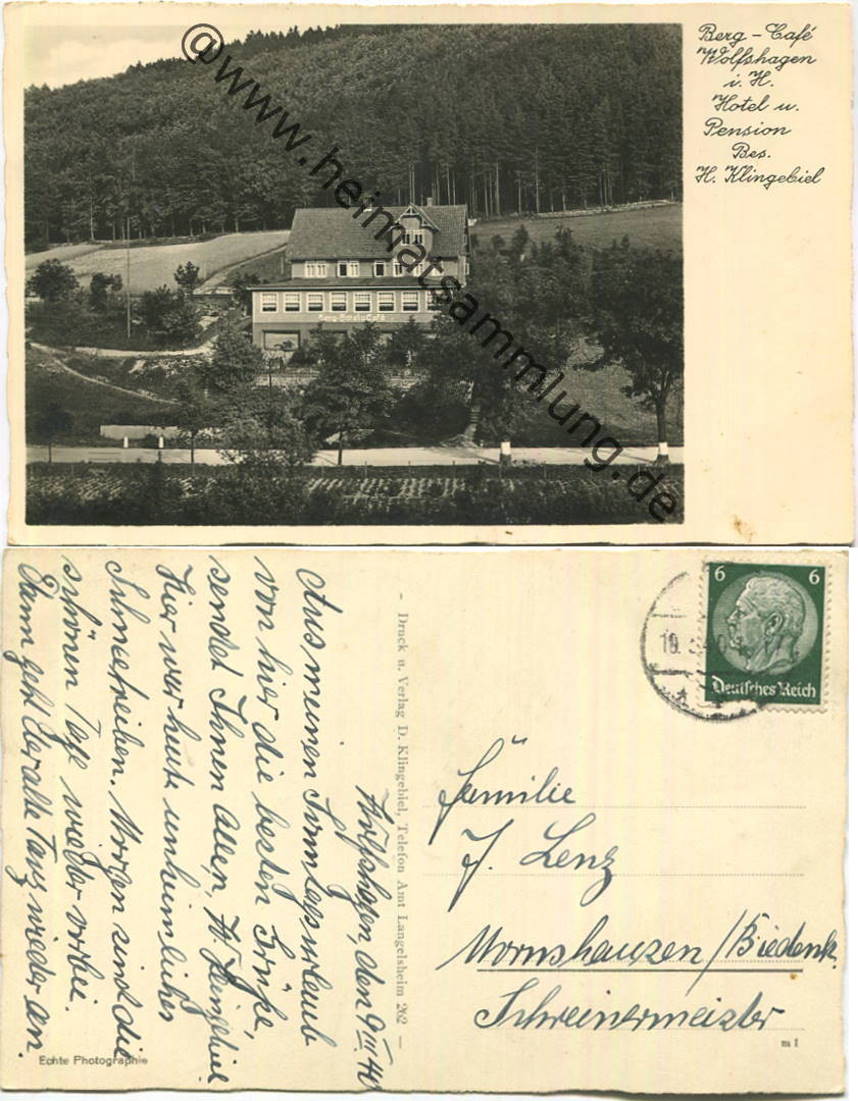 Berg - Café
Wolfshagen
i. H.
Hotel u.
Pension
Bes.
H. Klingebiel
@www.heimatsammlung.de
Berg-Hotel u. Café
6 6
Deutsches Reich
Wolfshagen, den 9. III. 40
Aus meinen Sonntagsurlaub
von hier die besten Grüße,
sendet Ihnen Allen, H. Klingebiel.
Hier war heute unheimliches
Schneetreiben. Morgen sind die
schönen Tage wieder vorbei.
Dann geht der alte Tanz wieder an.
Echte Photographie
- Druck u. Verlag D. Klingebiel, Telefon Amt Langelsheim 262 -
Familie
J. Lenz
Mornshausen/Biedenk.
Schreinermeister
m 1